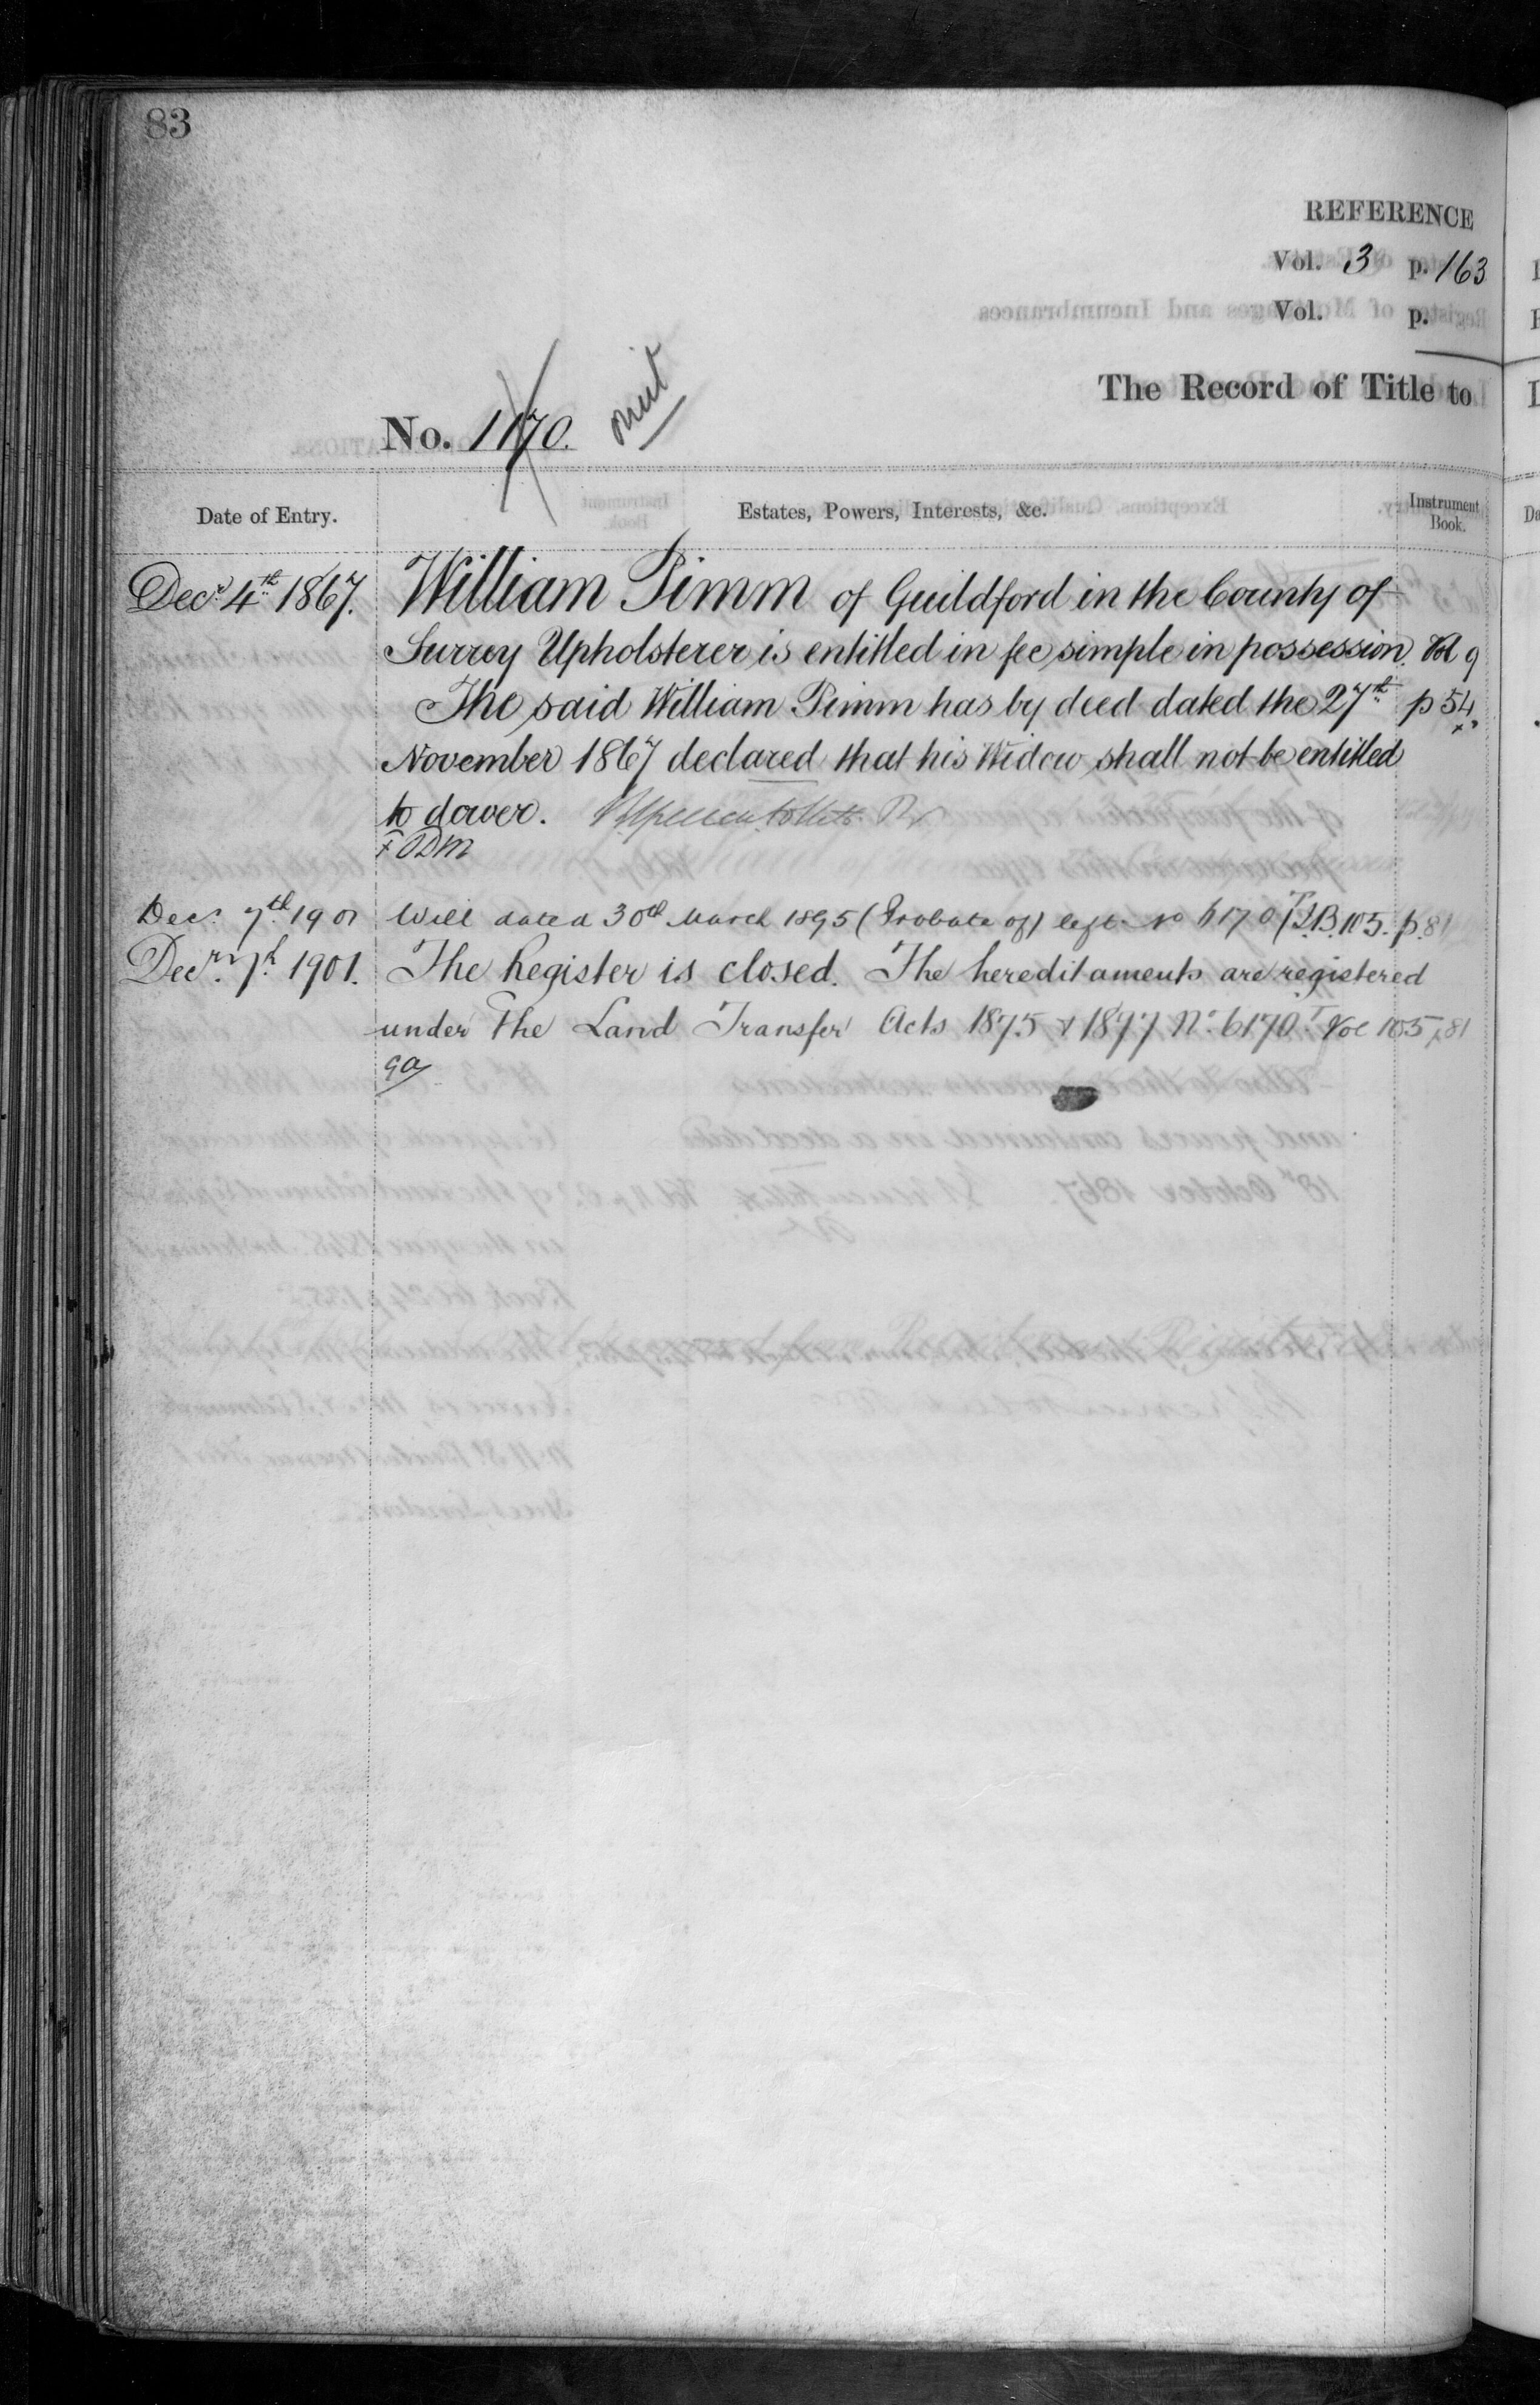 83
REFERENCE
Vol. 3 p. 163
Vol. p.
The Record of Title to
No. 1170. omit
Date of Entry. Estates, Powers, Interests, &c. Instrument Book.
Decr. 4th 1867. William Pimm of Guildford in the County of
Surrey Upholsterer is entitled in fee simple in possession. Vol 9
The said William Pimm has by deed dated the 27th p 54
November 1867 declared that his Widow shall not be entitled
to dower.
Dec. 7th 1901 Will dated 30th March 1895 (Probate of) left No 6170 T I.B. 105. p. 81
Decr. 7th 1901. The Register is closed. The hereditaments are registered
under The Land Transfer Acts 1875 & 1897 No. 6170 T Vol 105, 81